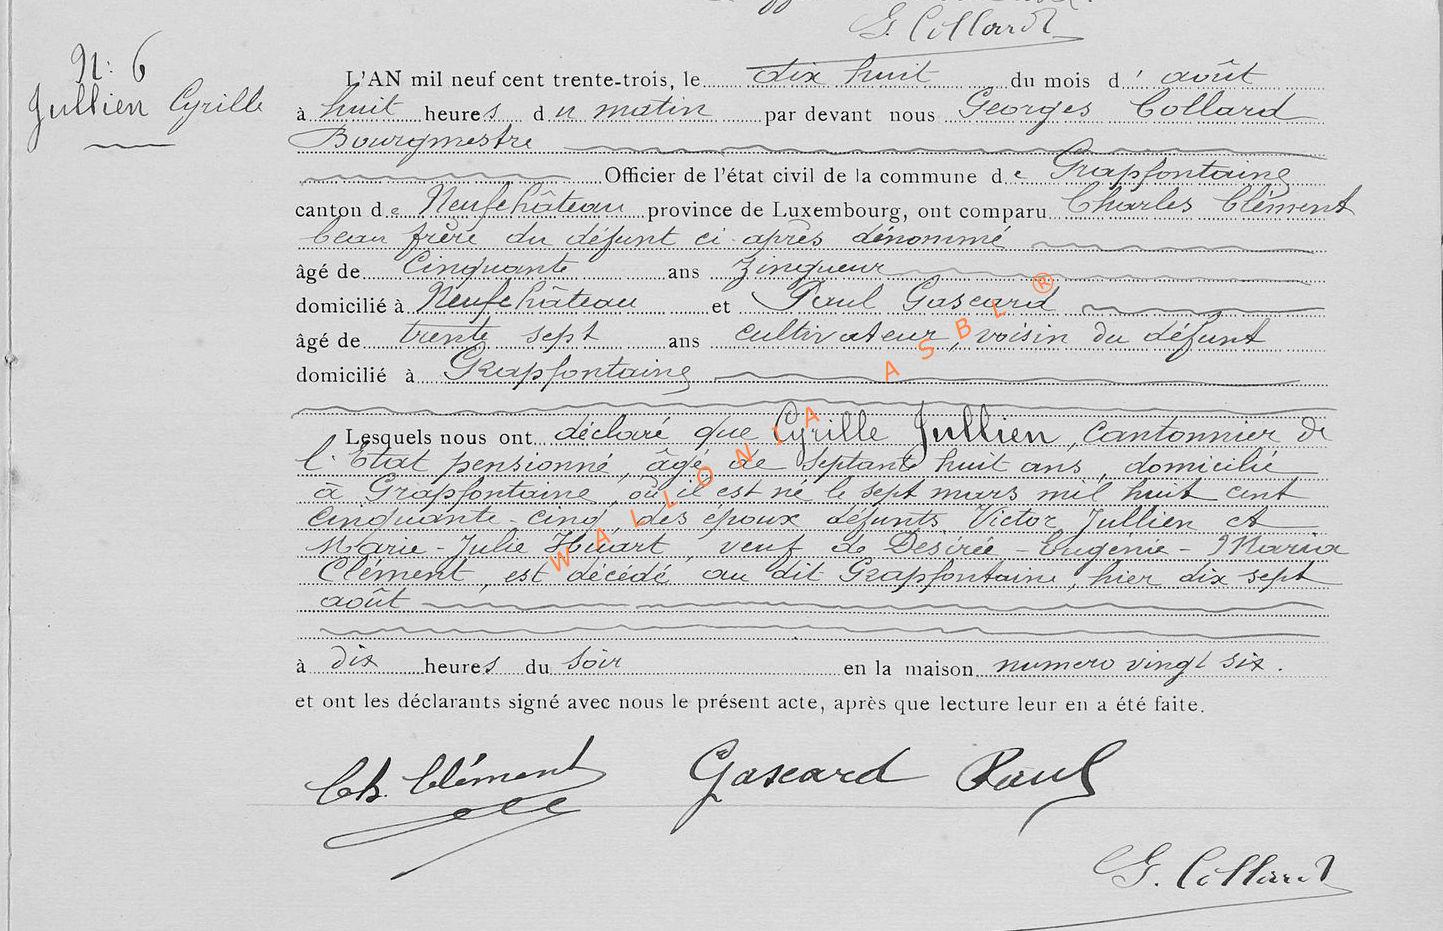 G. Collard
N: 6
Jullien Cyrille
L'AN mil neuf cent trente-trois, le dix huit du mois d' août
à huit heures du matin par devant nous Georges Collard
Bourgmestre
Officier de l'état civil de la commune de Grapfontaine
canton de Neufchâteau province de Luxembourg, ont comparu Charles Clément
beau frère du défunt ci-après dénommé
âgé de Cinquante ans zingueur
domicilié à Neufchâteau et Paul Gascard
âgé de trente sept ans cultivateur, voisin du défunt
domicilié à Grapfontaine
Lesquels nous ont déclaré que Cyrille Jullien, Cantonnier de
l'Etat pensionné, âgé de Septante huit ans, domicilié
à Grapfontaine, où il est né le sept mars mil huit cent
cinquante-cinq des époux défunts Victor Jullien et
Marie-Julie Huart, veuf de Desirée-Eugénie-Maria
Clément, est décédé au dit Grapfontaine, hier dix sept
août
à dix heures du soir en la maison numero vingt six.
et ont les déclarants signé avec nous le présent acte, après que lecture leur en a été faite.
Ch. Clément Gascard Paul
G. Collard
WALLONIA ASBL ®